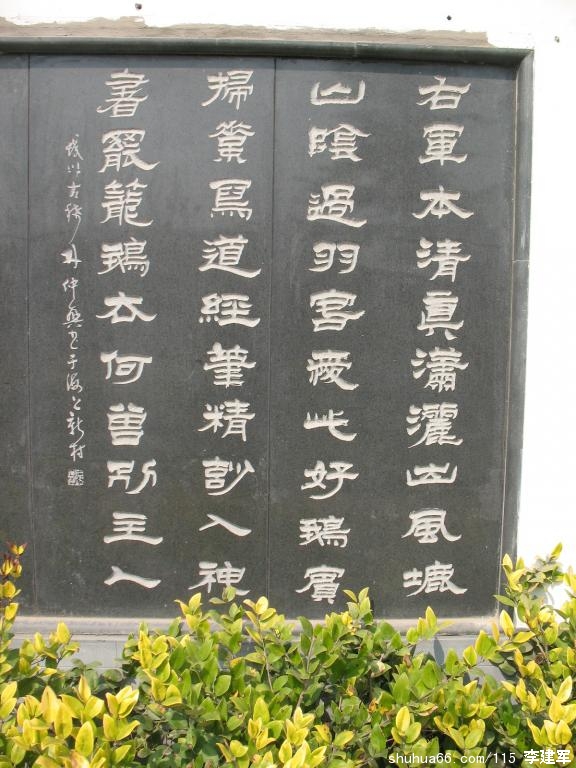 右軍本清真瀟灑出風塵
山陰過羽客愛此好鵝賓
掃素寫道經筆精妙入神
書罷籠鵝去何曾別主人
以古隸 仲興书于海上新村
shuhua66.com/115 李建军